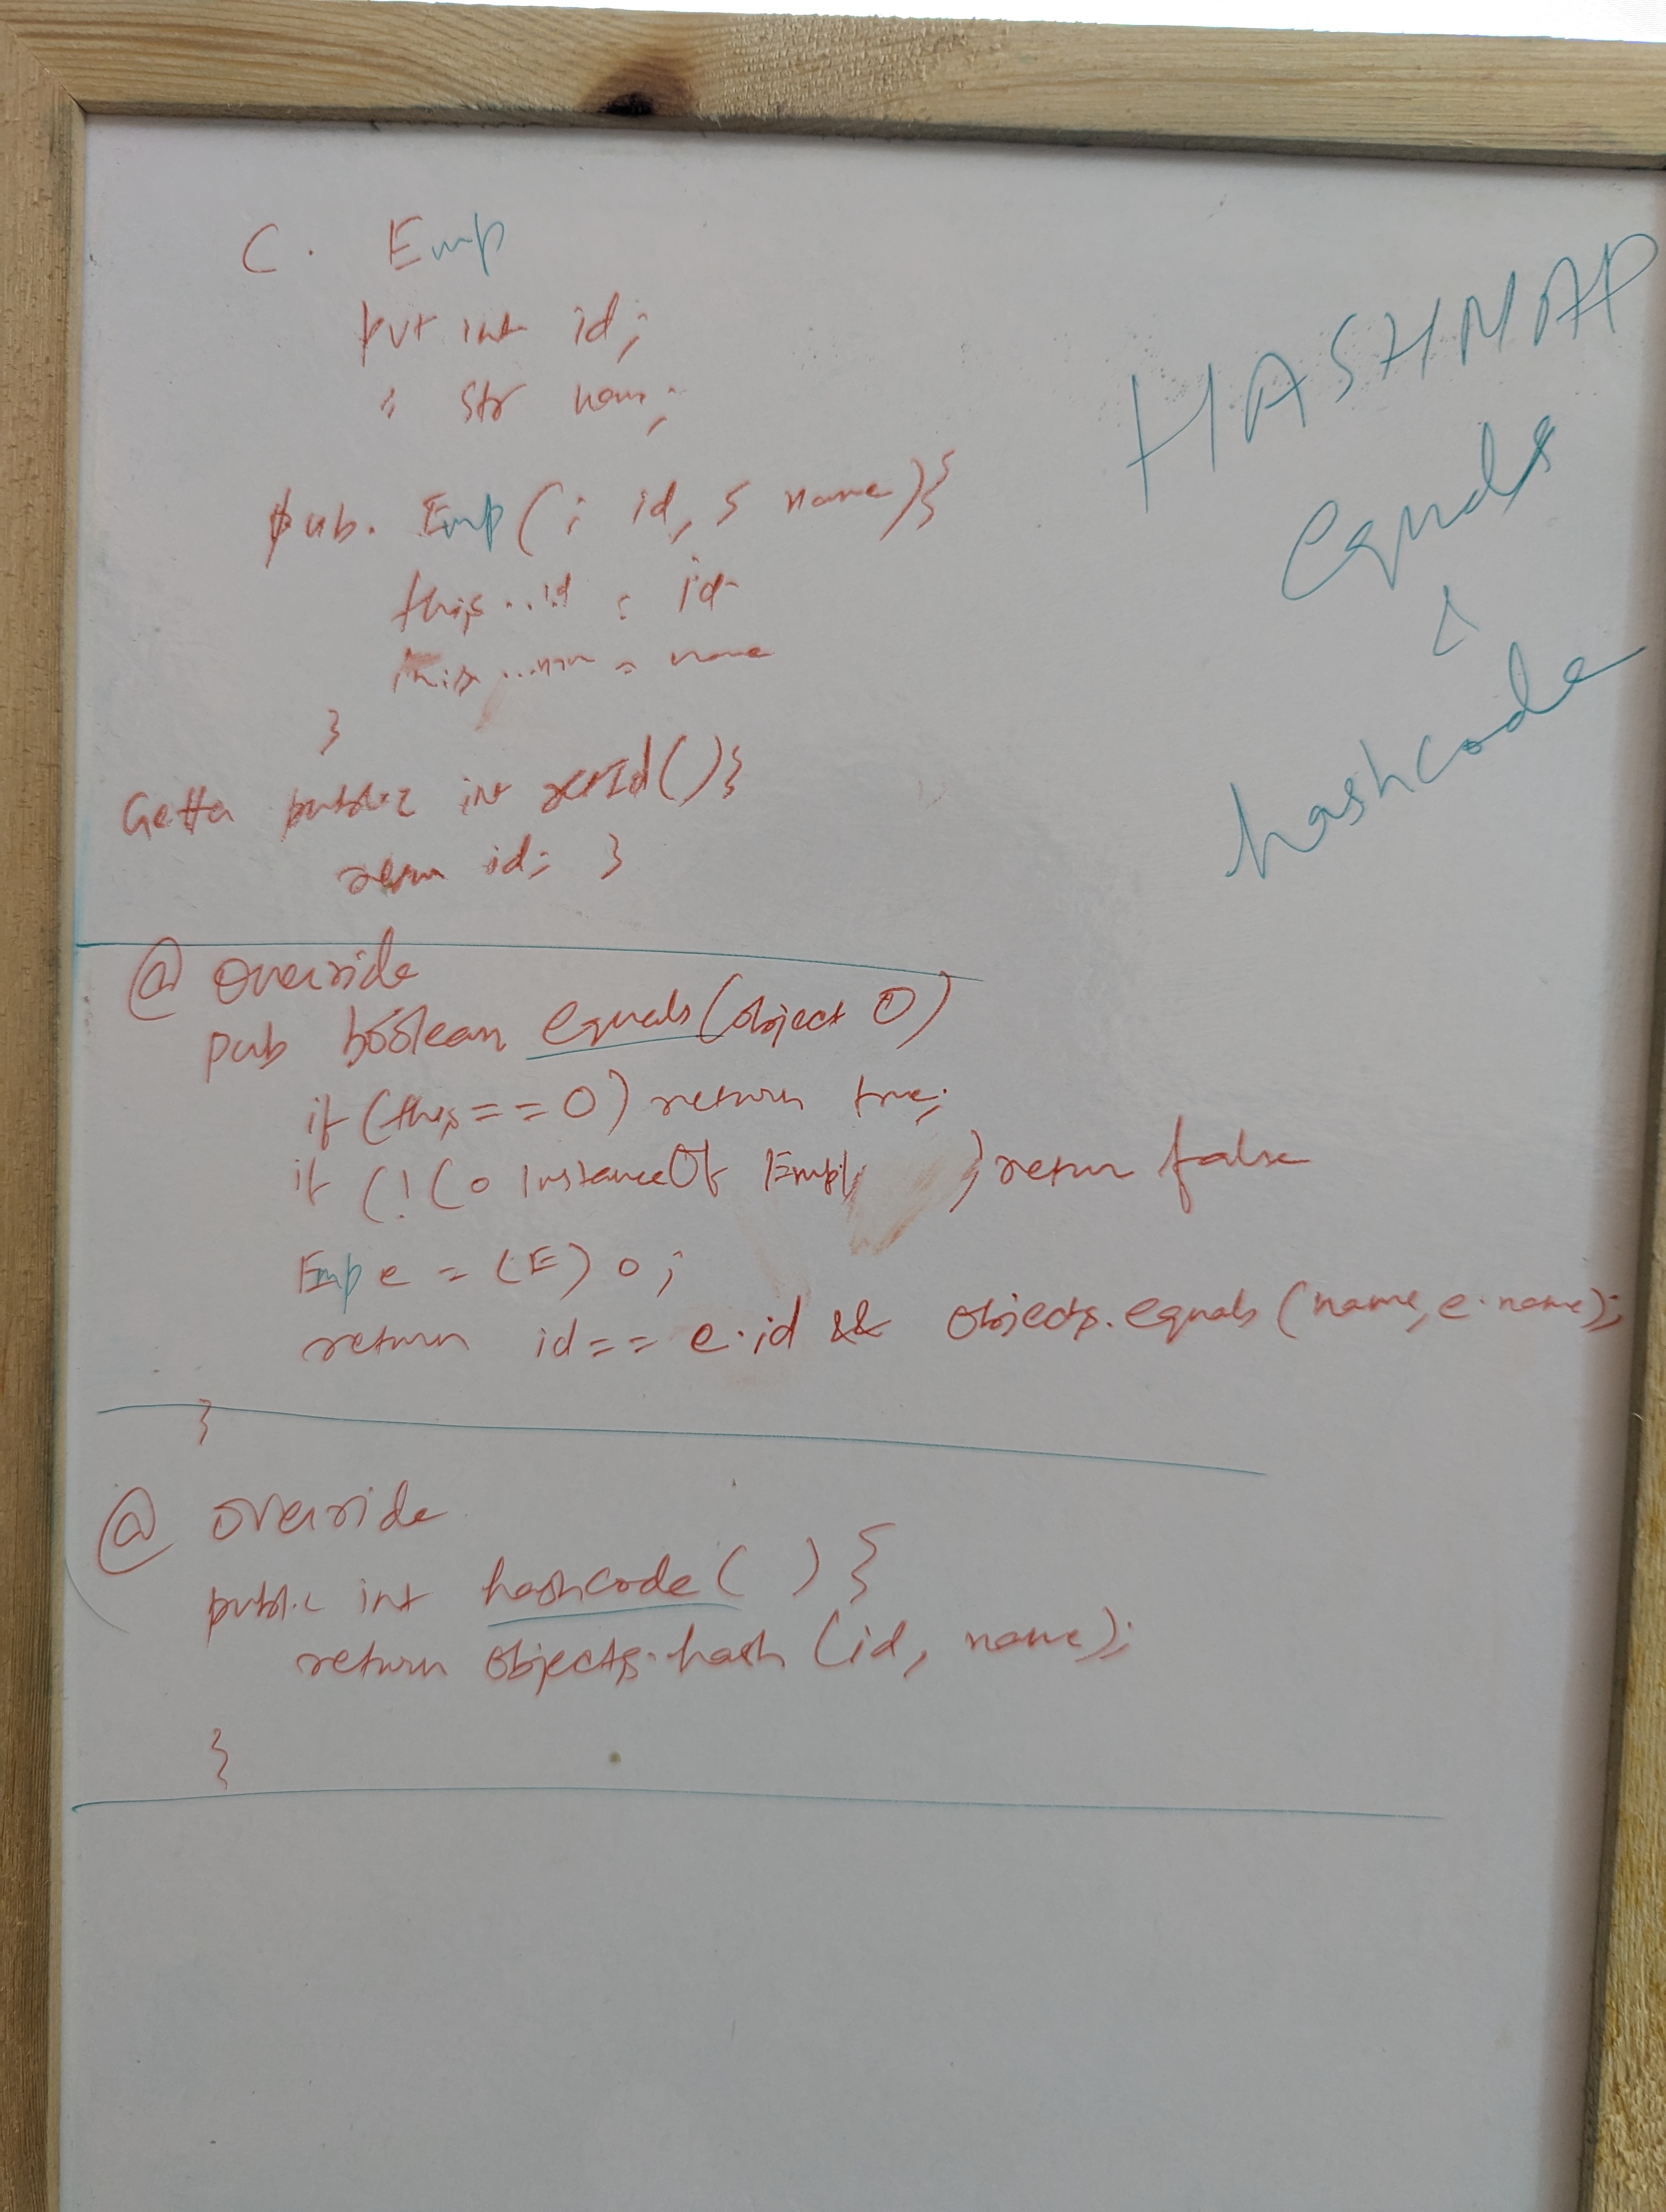 C. Emp
pvt int id;
" str nam;
pub. Emp (i id, s name){
this..id = id
this... = name
}
Getter public int getId(){
return id; }
@ override
pub boolean equals (object O)
if (this == O) return true;
if (! (o InstanceOf Emp ) return false
Emp e = (E) o;
return id == e.id && objects.equals (name, e.name);
}
@ override
public int hashcode ( ) {
return objects.hash (id, name);
}
HASHMAP
equals
&
hashcode